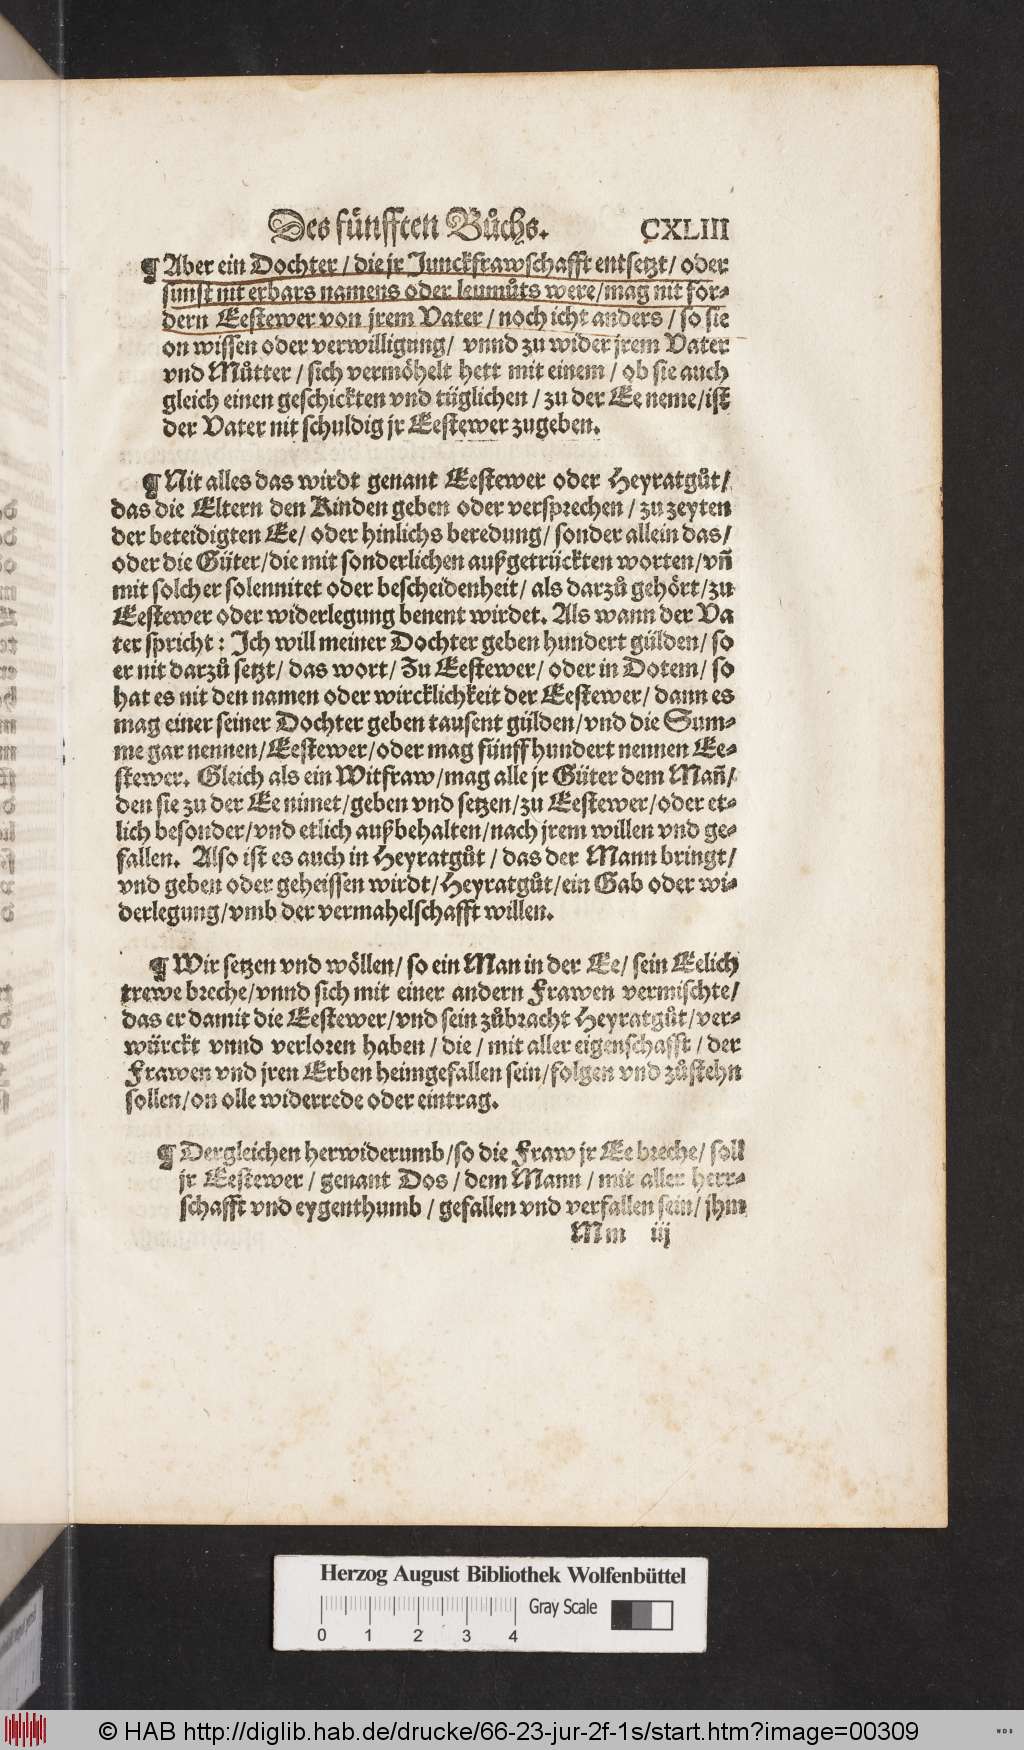 Des fünfften Bůchs. CXLIII
¶ Aber ein Dochter / die jr Junckfrawschafft entsetzt / oder
sunst nit erbars namens oder leumůts were / mag nit for⸗
dern Eestewer von jrem Vater / noch icht anders / so sie
on wissen oder verwilligung / vnnd zu wider jrem Vater
vnd Můtter / sich vermöhelt hett mit einem / ob sie auch
gleich einen geschickten vnd tüglichen / zu der Ee neme / ist
der Vater nit schuldig jr Eestewer zugeben.
¶ Nit alles das wirdt genant Eestewer oder Heyratgůt /
das die Eltern den Kinden geben oder versprechen / zu zeyten
der beteidigten Ee / oder hinlichs beredung / sonder allein das /
oder die Güter / die mit sonderlichen außgetrückten worten / vñ
mit solcher solennitet oder bescheidenheit / als darzů gehört / zu
Eestewer oder widerlegung benent wirdet. Als wann der Va
ter spricht : Ich will meiner Dochter geben hundert gülden / so
er nit darzů setzt / das wort / Zu Eestewer / oder in Dotem / so
hat es nit den namen oder wircklichkeit der Eestewer / dann es
mag einer seiner Dochter geben tausent gülden / vnd die Sum⸗
me gar nennen / Eestewer / oder mag fünff hundert nennen Ee⸗
stewer. Gleich als ein Witfraw / mag alle jr Güter dem Mañ /
den sie zu der Ee nimet / geben vnd setzen / zu Eestewer / oder et⸗
lich besonder / vnd etlich außbehalten / nach jrem willen vnd ge⸗
fallen. Also ist es auch in Heyratgůt / das der Mann bringt /
vnd geben oder geheissen wirdt / Heyratgůt / ein Gab oder wi⸗
derlegung / vmb der vermahelschafft willen.
¶ Wir setzen vnd wöllen / so ein Man in der Ee / sein Eelich
trewe breche / vnnd sich mit einer andern Frawen vermischte /
das er damit die Eestewer / vnd sein zůbracht Heyratgůt / ver⸗
würckt vnnd verloren haben / die / mit aller eigenschafft / der
Frawen vnd jren Erben heimgefallen sein / folgen vnd zůstehn
sollen / on olle widerrede oder eintrag.
¶ Dergleichen herwiderumb / so die Fraw jr Ee breche / soll
jr Eestewer / genant Dos / dem Mann / mit aller herr⸗
schafft vnd eygenthumb / gefallen vnd verfallen sein / jhm
Mm iij
Herzog August Bibliothek Wolfenbüttel
Gray Scale
0 1 2 3 4
© HAB http://diglib.hab.de/drucke/66-23-jur-2f-1s/start.htm?image=00309
WDB